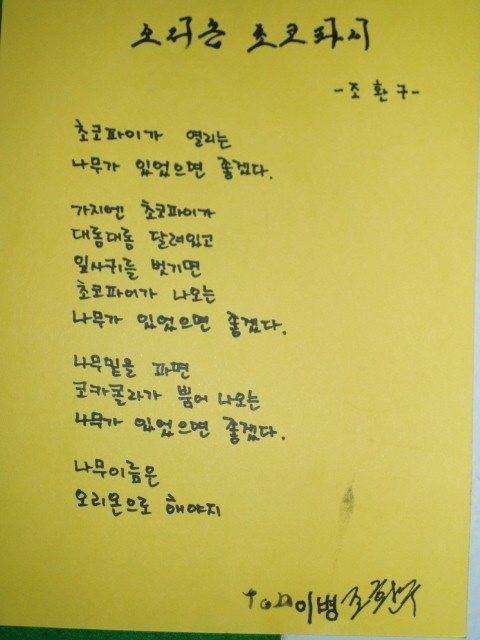 오리온 초코파이
-조환구-
초코파이가 열리는
나무가 있었으면 좋겠다.
가지엔 초코파이가
대롱대롱 달려있고
잎사귀를 벗기면
초코파이가 나오는
나무가 있었으면 좋겠다.
나무밑을 파면
코카콜라가 뿜어 나오는
나무가 있었으면 좋겠다.
나무이름은
오리온으로 해야지
이병 조환구